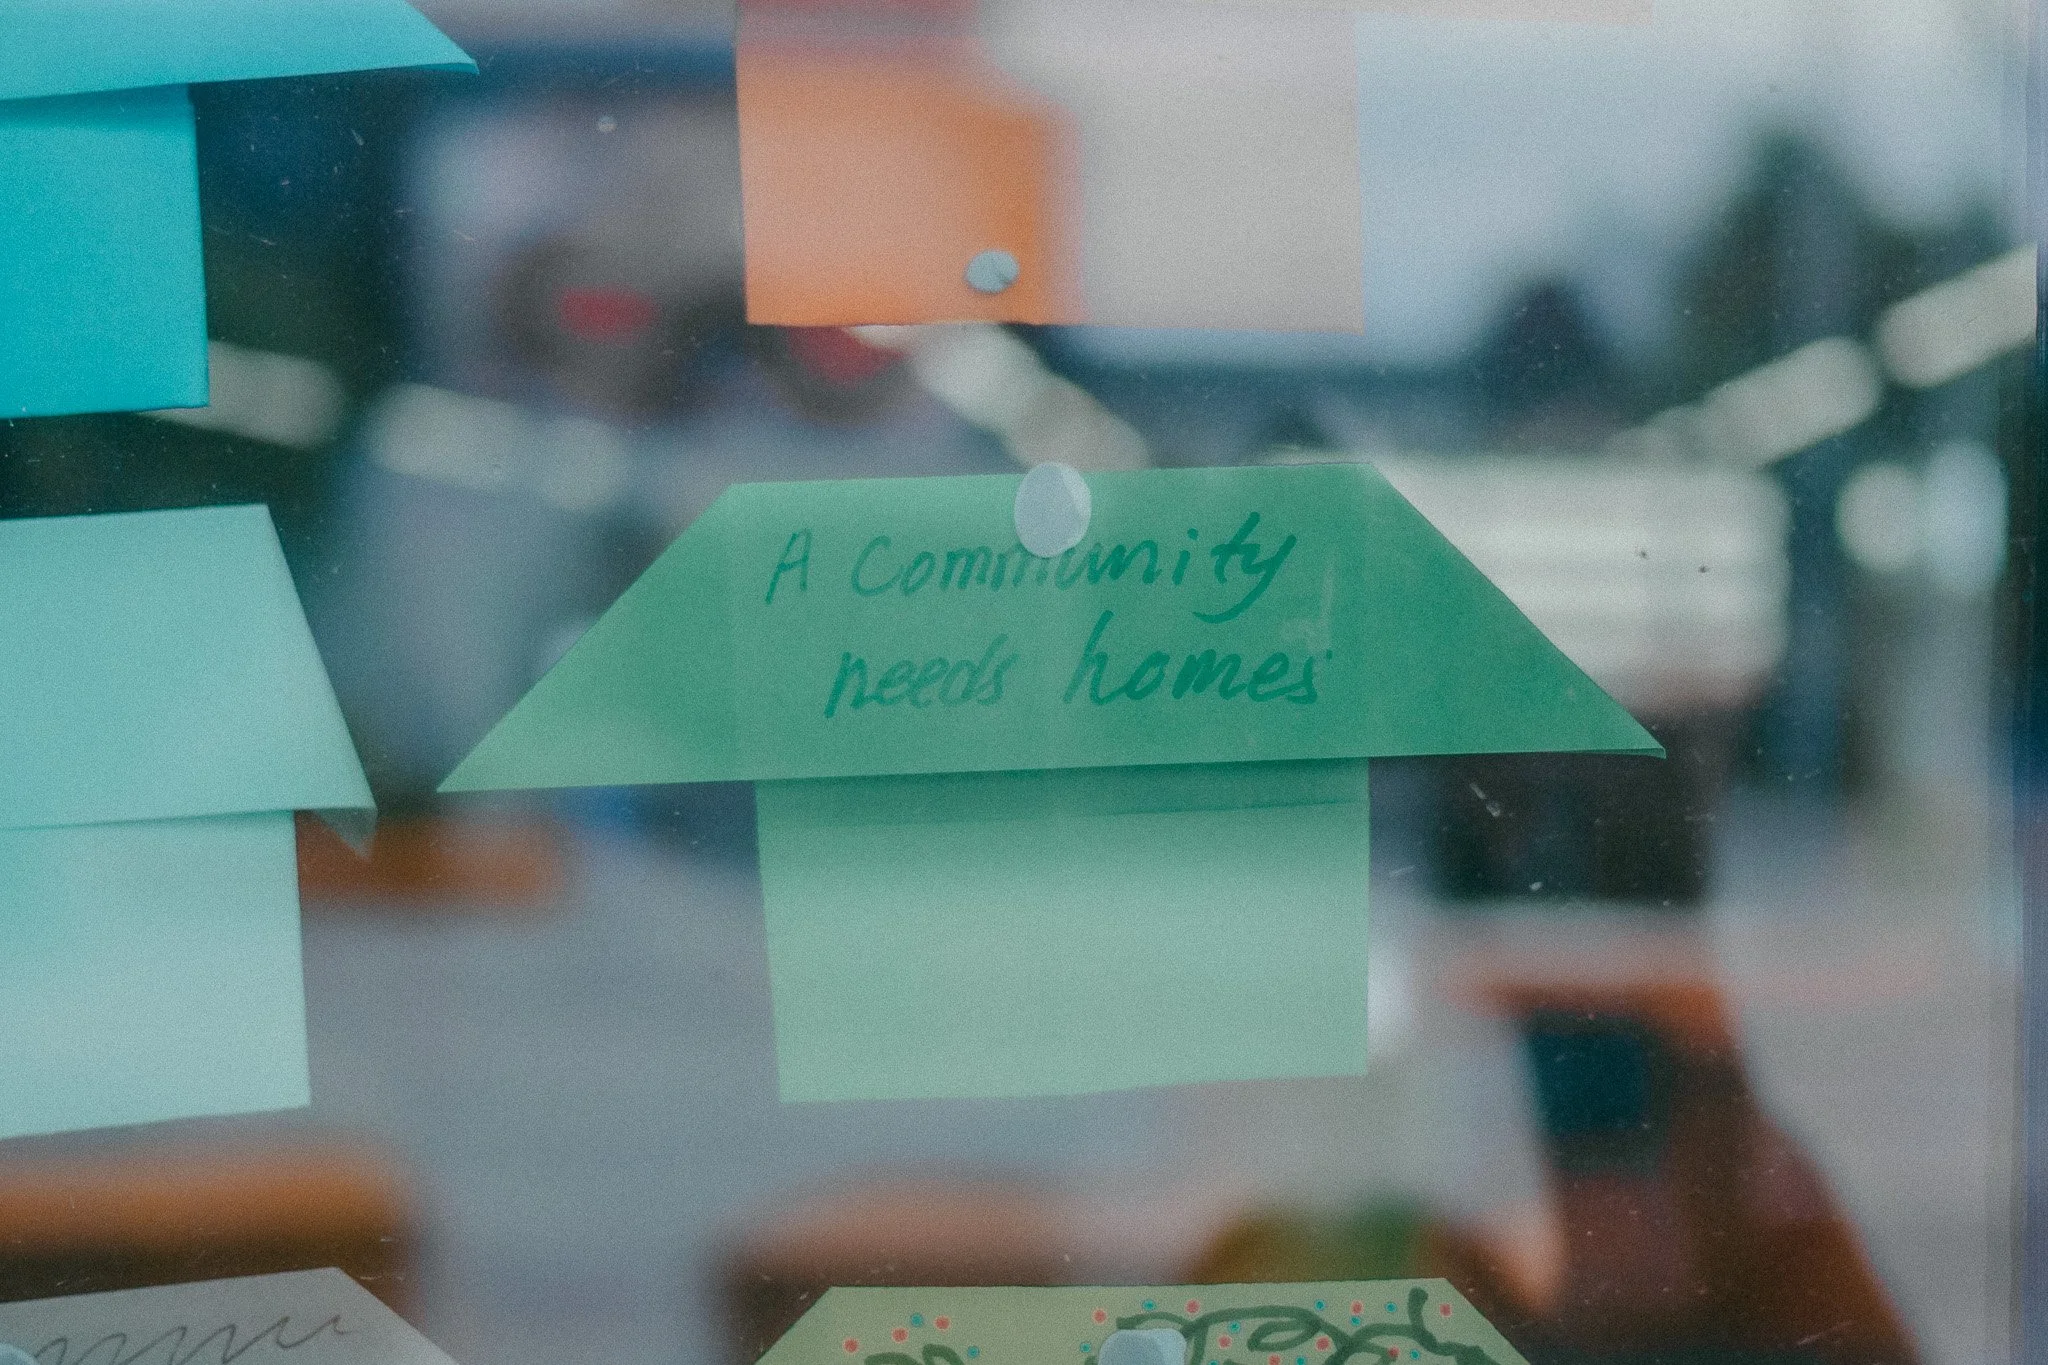 A Community
needs homes